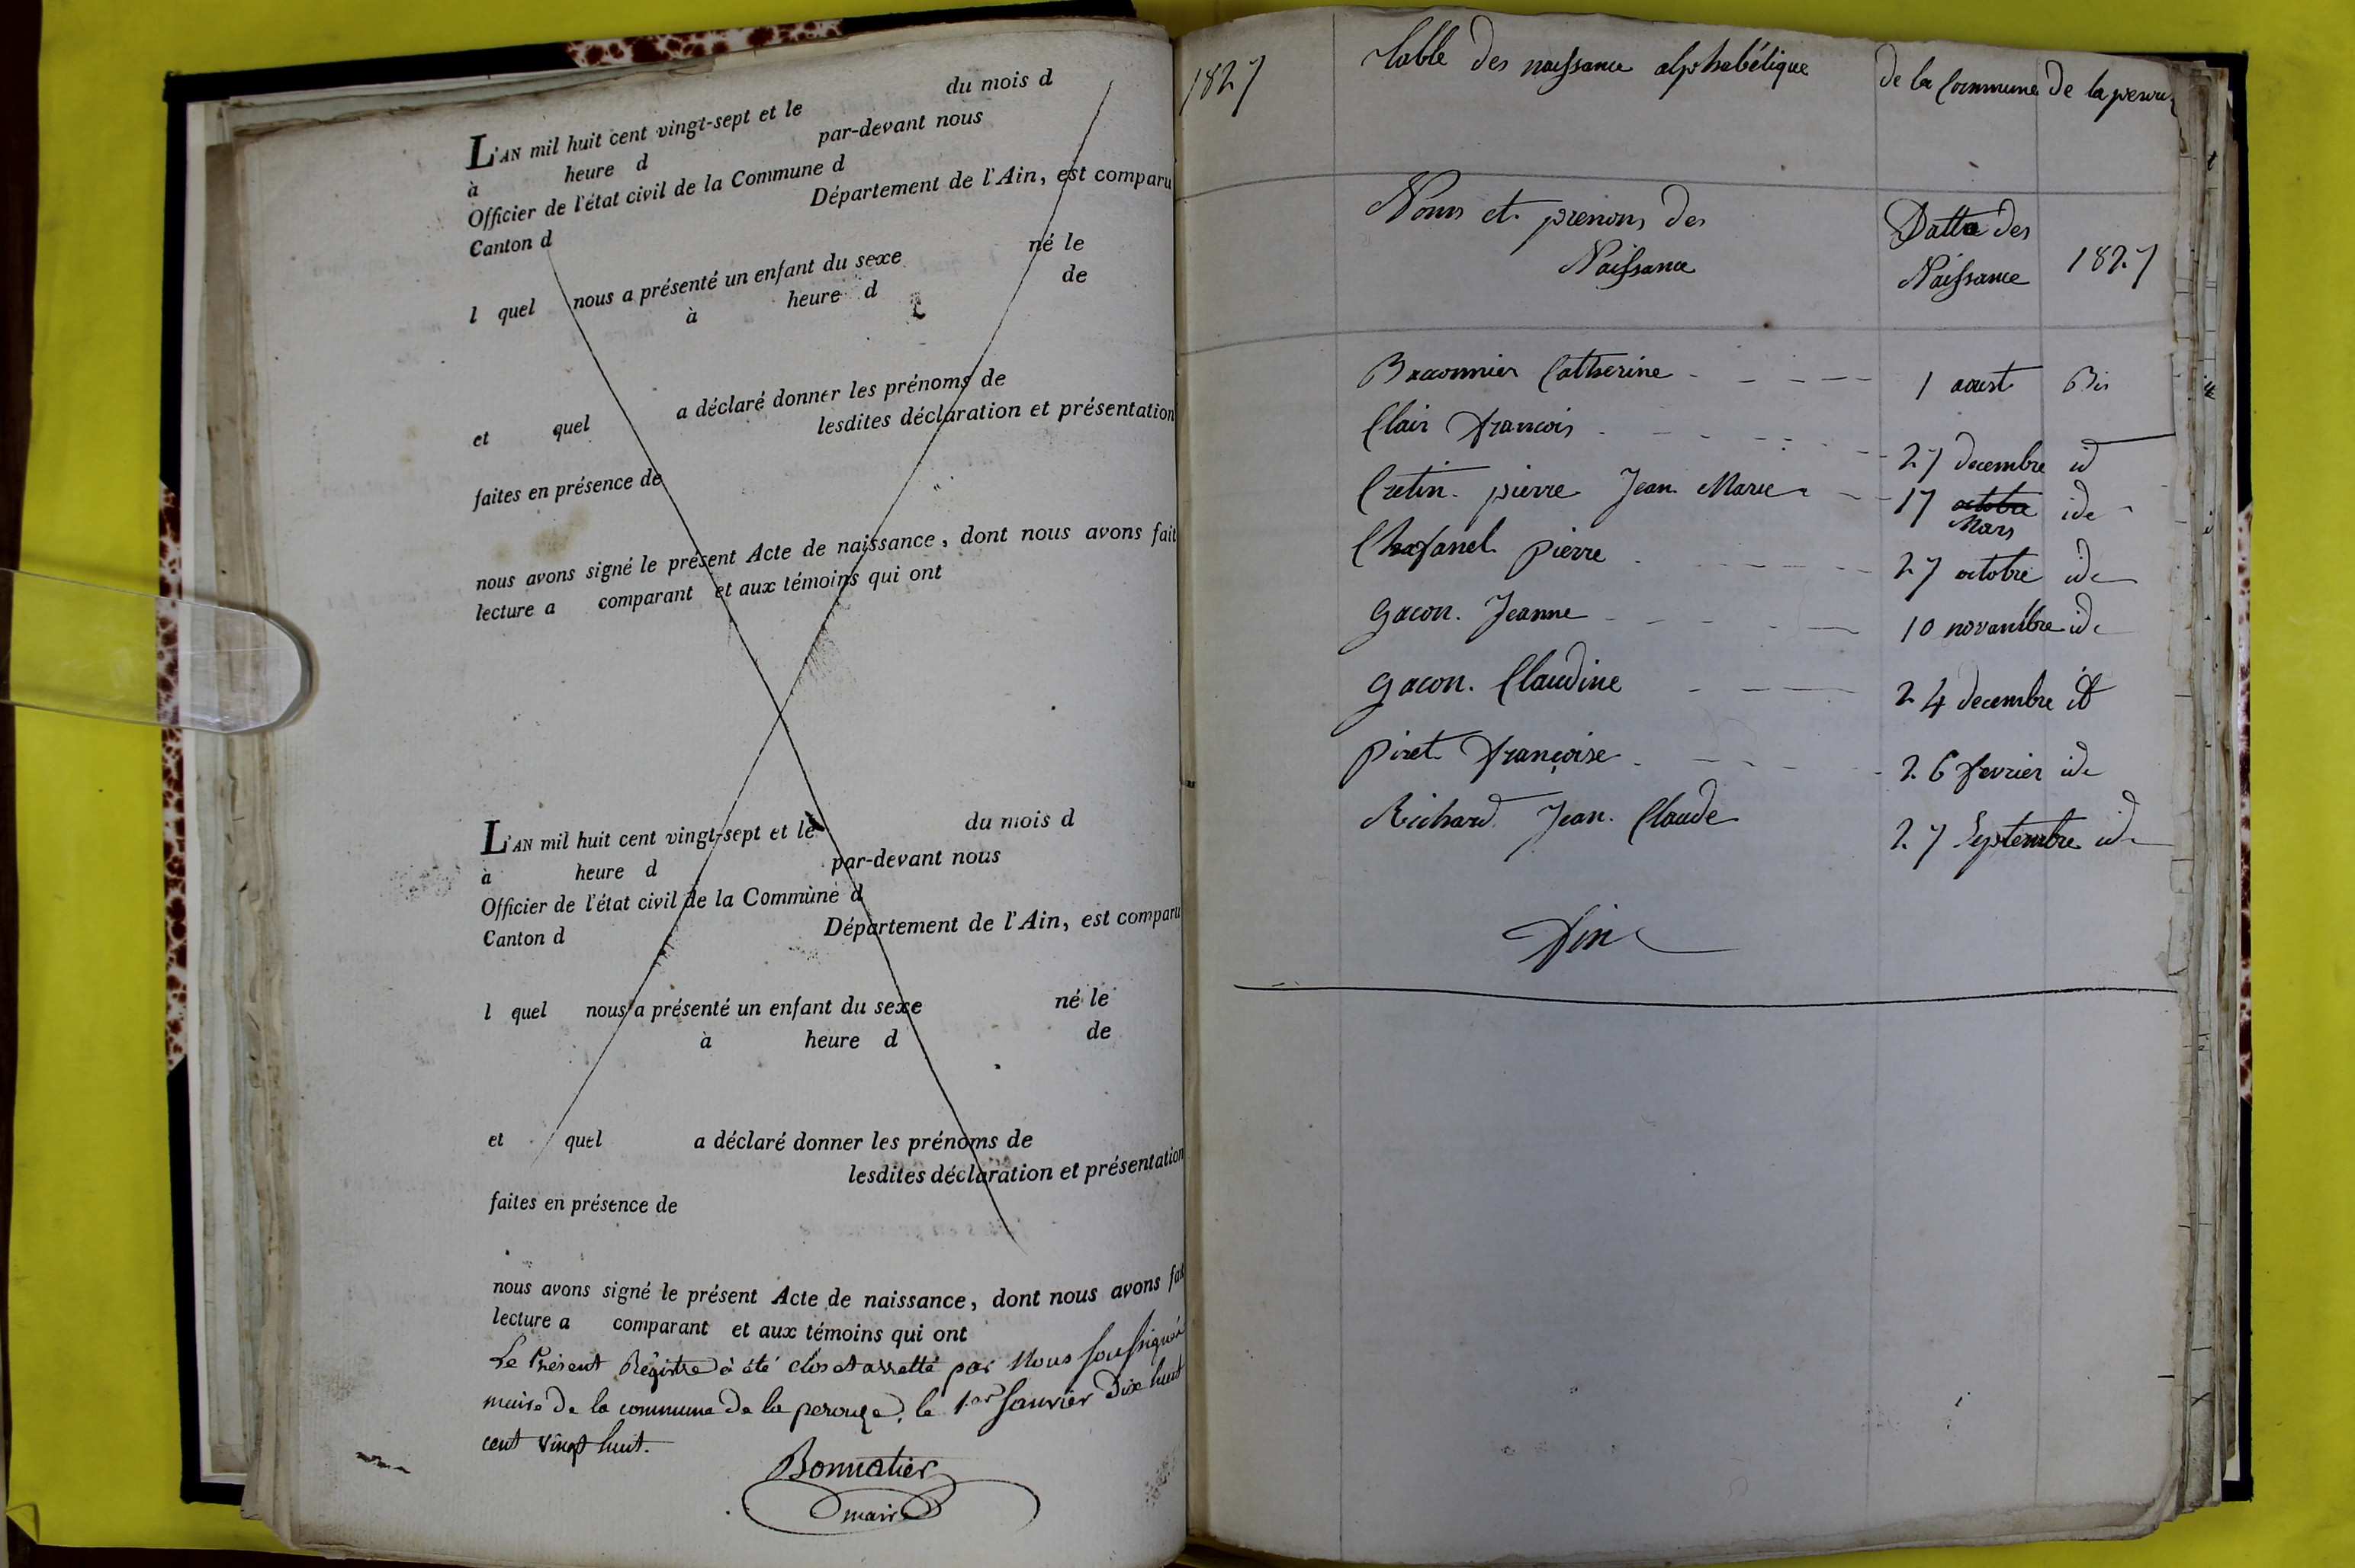 L'AN mil huit cent vingt-sept et le du mois d
à heure d par-devant nous
Officier de l'état civil de la Commune d
Canton d Département de l'Ain, est comparu
l quel nous a présenté un enfant du sexe né le
à heure d de
et quel a déclaré donner les prénoms de
lesdites déclaration et présentation
faites en présence de
nous avons signé le présent Acte de naissance, dont nous avons fait
lecture a comparant et aux témoins qui ont
L'AN mil huit cent vingt-sept et le du mois d
à heure d par-devant nous
Officier de l'état civil de la Commune d
Canton d Département de l'Ain, est comparu
l quel nous a présenté un enfant du sexe né le
à heure d de
et quel a déclaré donner les prénoms de
lesdites déclaration et présentation
faites en présence de
nous avons signé le présent Acte de naissance, dont nous avons fai
lecture a comparant et aux témoins qui ont
Le Présent Régistre à été clos et arretté par Nous soussigné
maire de la commune de la perouze, le 1er Janvier dix huit
cent vingt huit.
Bonnatier
maire
1827 Table des naissance alphabétique de la Commune de la perou
Noms et prenoms des Naissance
Datte des Naissance
1827
Baconnier Catherine 1 aoust Bis
Clair francois 27 decembre id
Cretin pierre Jean Marie 17 octobre Mars ide
Chafanel Pierre 27 octobre ide
gacon. Jeanne 10 novambre ide
gacon. Claudine 24 decembre id
piret françoise 26 fevrier ide
Richard Jean Claude 27 Septembre ide
fin